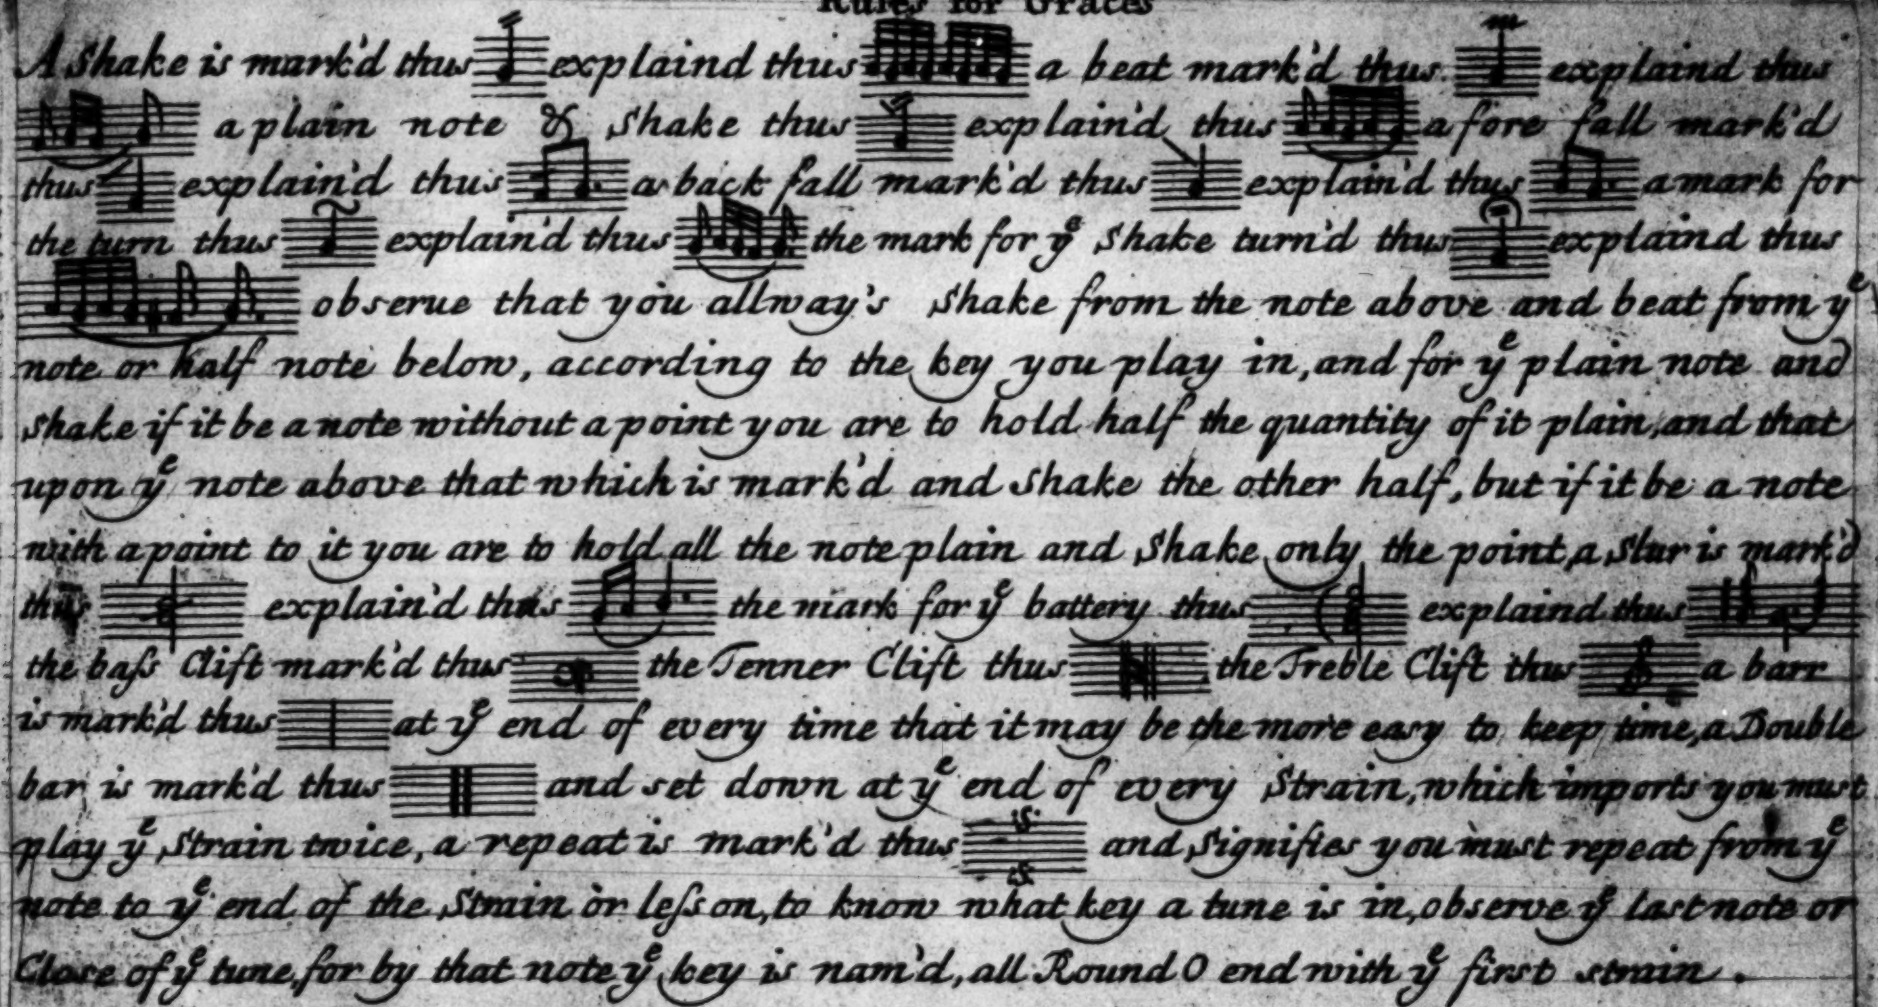 Rules for Graces
A Shake is mark'd thus explaind thus a beat mark'd thus explaind thus
a plain note & Shake thus explain'd thus a fore fall mark'd
thus explain'd thus a back fall mark'd thus explain'd thus a mark for
the turn thus explain'd thus the mark for yᵉ Shake turn'd thus explaind thus
observe that you allway's Shake from the note above and beat from yᵉ
note or half note below, according to the key you play in, and for yᵉ plain note and
Shake if it be a note without a point you are to hold half the quantity of it plain, and that
upon yᵉ note above that which is mark'd and Shake the other half, but if it be a note
with a point to it you are to hold all the note plain and Shake only the point, a Slur is mark'd
thus explain'd thus the mark for yᵉ battery thus explaind thus
the baſs Clift mark'd thus the Tenner Clift thus the Treble Clift thus a barr
is mark'd thus at yᵉ end of every time that it may be the more easy to keep time, a Double
bar is mark'd thus and set down at yᵉ end of every Strain, which imports you must
play yᵉ Strain twice, a repeat is mark'd thus :S: :S: and Signifies you must repeat from yᵉ
note to yᵉ end of the Strain or leſson, to know what key a tune is in, observe yᵉ last note or
Close of yᵉ tune, for by that note yᵉ key is nam'd, all Round O end with yᵉ first strain.